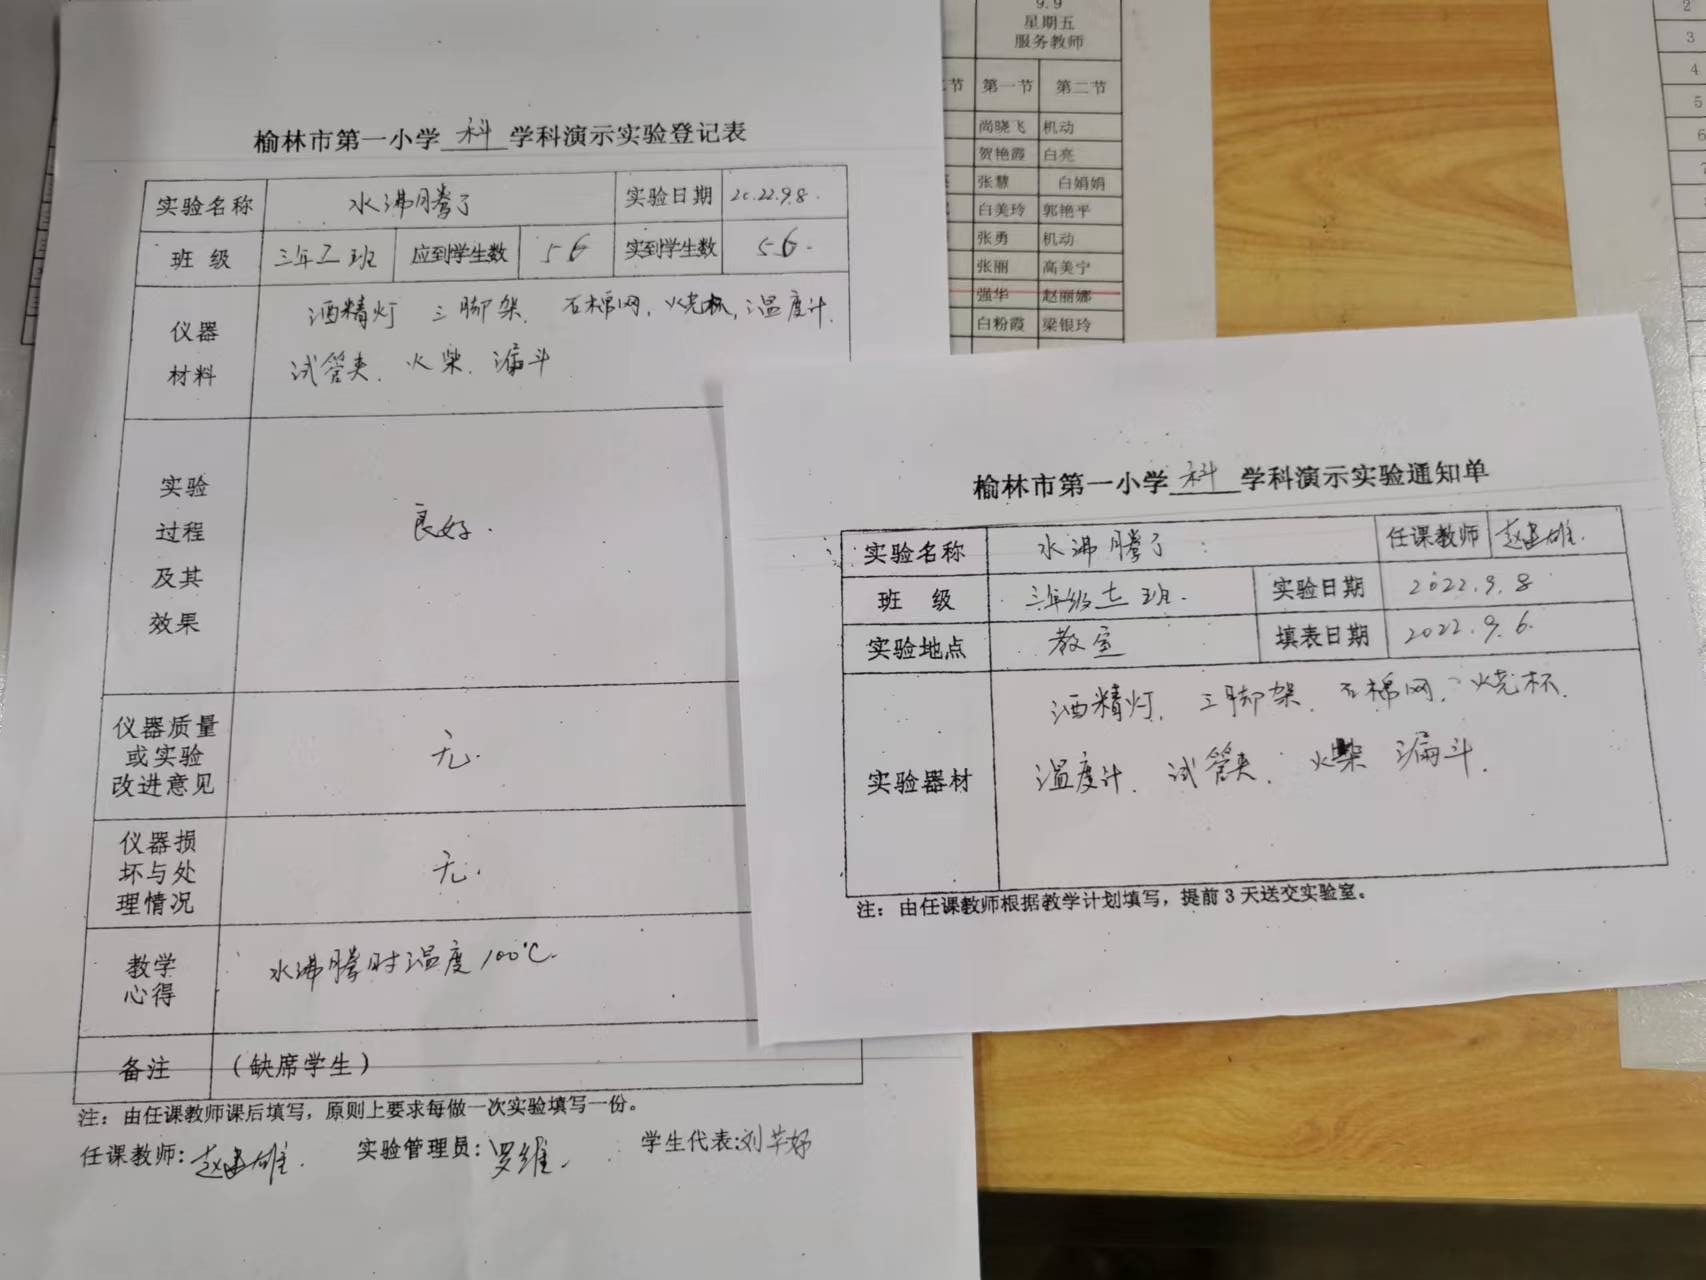 榆林市第一小学 科 学科演示实验登记表
实验名称 水沸腾了 实验日期 2022.9.8.
班 级 三年 班 应到学生数 56 实到学生数 56.
仪器材料 酒精灯 三脚架、石棉网,烧杯,温度计.
试管夹、火柴、漏斗
实验过程及其效果 良好.
仪器质量或实验改进意见 无.
仪器损坏与处理情况 无.
教学心得 水沸腾时温度100℃.
备注 (缺席学生)
注: 由任课教师课后填写,原则上要求每做一次实验填写一份。
任课教师:赵建雄. 实验管理员:罗维. 学生代表:刘
榆林市第一小学 科 学科演示实验通知单
实验名称 水沸腾了 任课教师 赵建雄.
班 级 三年级七班. 实验日期 2022.9.8
实验地点 教室 填表日期 2022.9.6.
实验器材 酒精灯、三脚架、石棉网、烧杯.
温度计、试管夹、火柴 漏斗.
注: 由任课教师根据教学计划填写,提前3天送交实验室。
9.9
星期五
服务教师
节 第一节 第二节
尚晓飞 机动
贺艳霞 白亮
张慧 白娟娟
白美玲 郭艳平
张勇 机动
张丽 高美宁
强华 赵丽娜
白粉霞 梁银玲
2
3
4
5
6
7